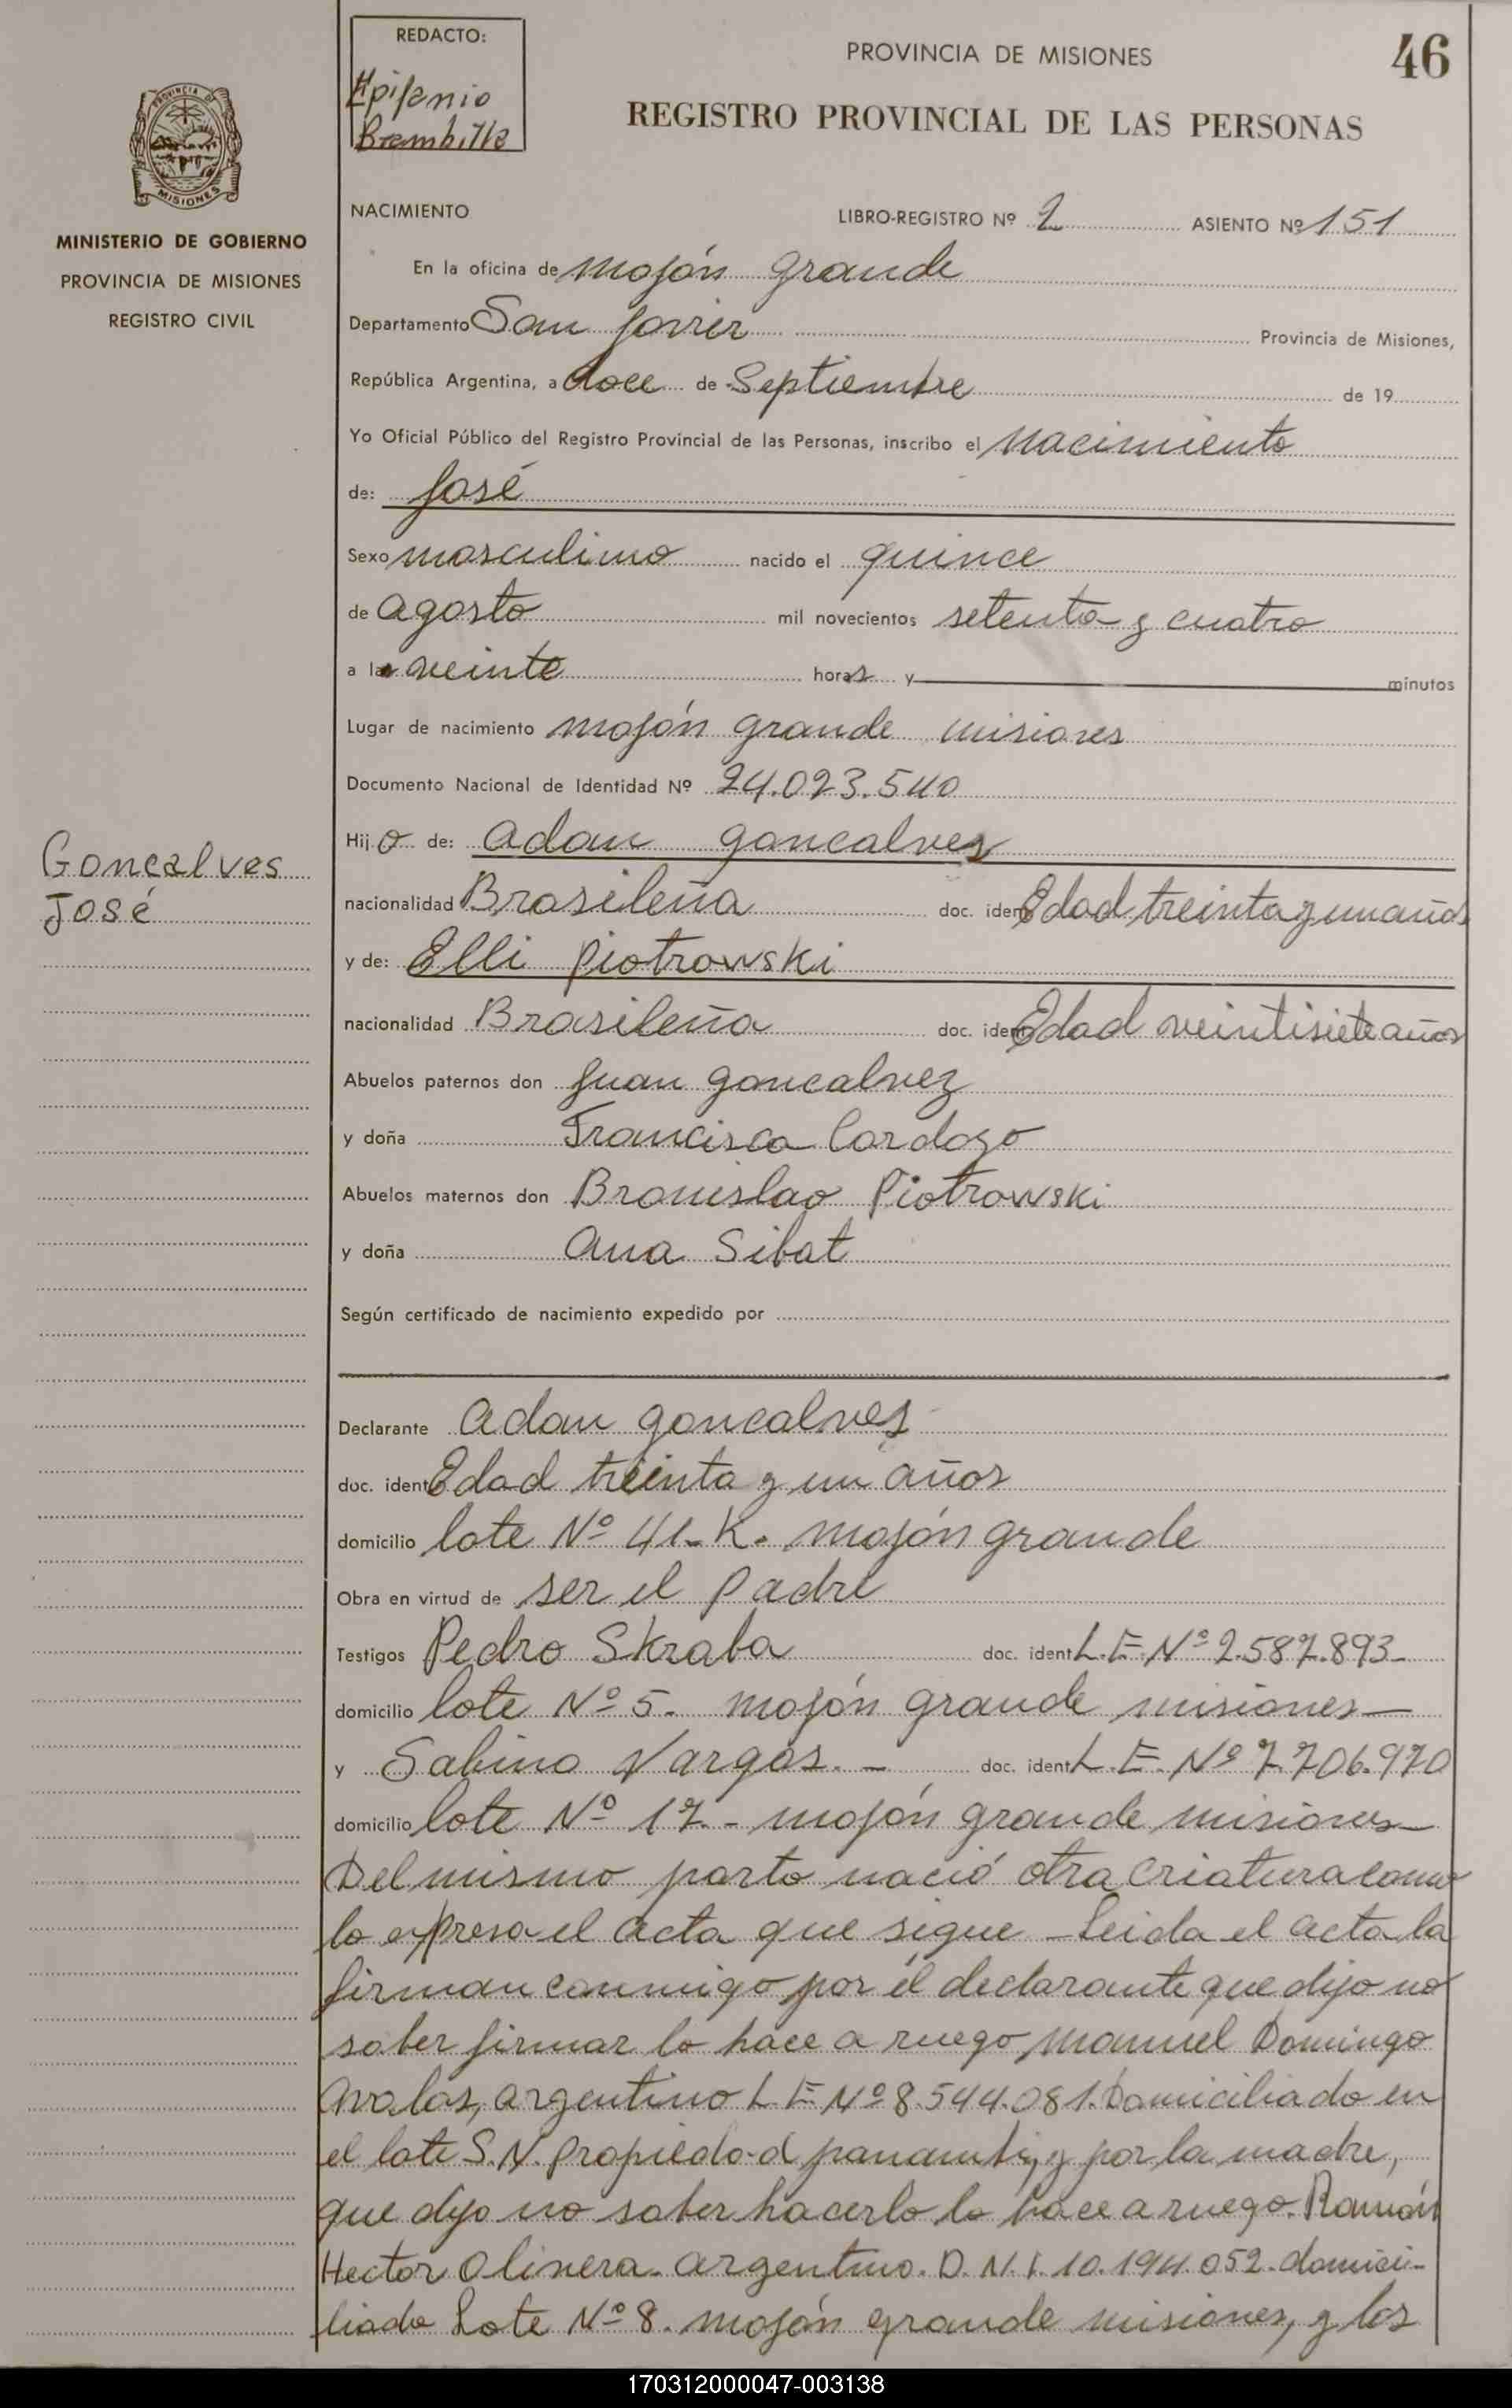 REDACTO:
Epifanio
Brambilla
PROVINCIA DE MISIONES
46
REGISTRO PROVINCIAL DE LAS PERSONAS
PROVINCIA DE
MISIONES
MINISTERIO DE GOBIERNO
PROVINCIA DE MISIONES
REGISTRO CIVIL
NACIMIENTO
LIBRO-REGISTRO Nº 2 ASIENTO Nº 151
En la oficina de Mojón grande
Departamento San Javier Provincia de Misiones,
República Argentina, a doce de Septiembre de 19
Yo Oficial Público del Registro Provincial de las Personas, inscribo el Nacimiento
de: José
Sexo masculino nacido el quince
de agosto mil novecientos setenta y cuatro
a las veinte horas y minutos
Lugar de nacimiento mojón grande misiones
Documento Nacional de Identidad Nº 24.023.540
Hijo de: Adan goncalves
Goncalves
José
nacionalidad Brasileña doc. ident Edad treinta y un años
y de: Elli Piotrowski
nacionalidad Brasileña doc. ident Edad veintisiete años
Abuelos paternos don Juan goncalvez
y doña Francisca Cardozo
Abuelos maternos don Bronislao Piotrowski
y doña Ana Sibat
Según certificado de nacimiento expedido por
Declarante Adan goncalves
doc. ident Edad treinta y un años
domicilio lote Nº 41-K. mojón grande
Obra en virtud de ser el padre
Testigos Pedro Skraba doc. ident L.E. Nº 2.587.893-
domicilio lote Nº 5. mojón grande misiones-
y Sabino Vargas. - doc. ident L.E. Nº 7.706.970
domicilio lote Nº 17.- mojón grande misiones-
Del mismo parto nació otra criatura como
lo expresa el acta que sigue - Leida el acta la
firman conmigo por el declarante que dijo no
saber firmar lo hace a ruego Manuel Domingo
Avalos, argentino L.E. Nº 8.544.081. Domiciliado en
el lote S.N. propiedad panambi, y por la madre,
que dijo no saber hacerlo lo hace a ruego. Ramón
Hector Olivera. argentino. D.N.I. 10.194.052. domici-
liado Lote Nº 8. mojón grande misiones, y los
170312000047-003138